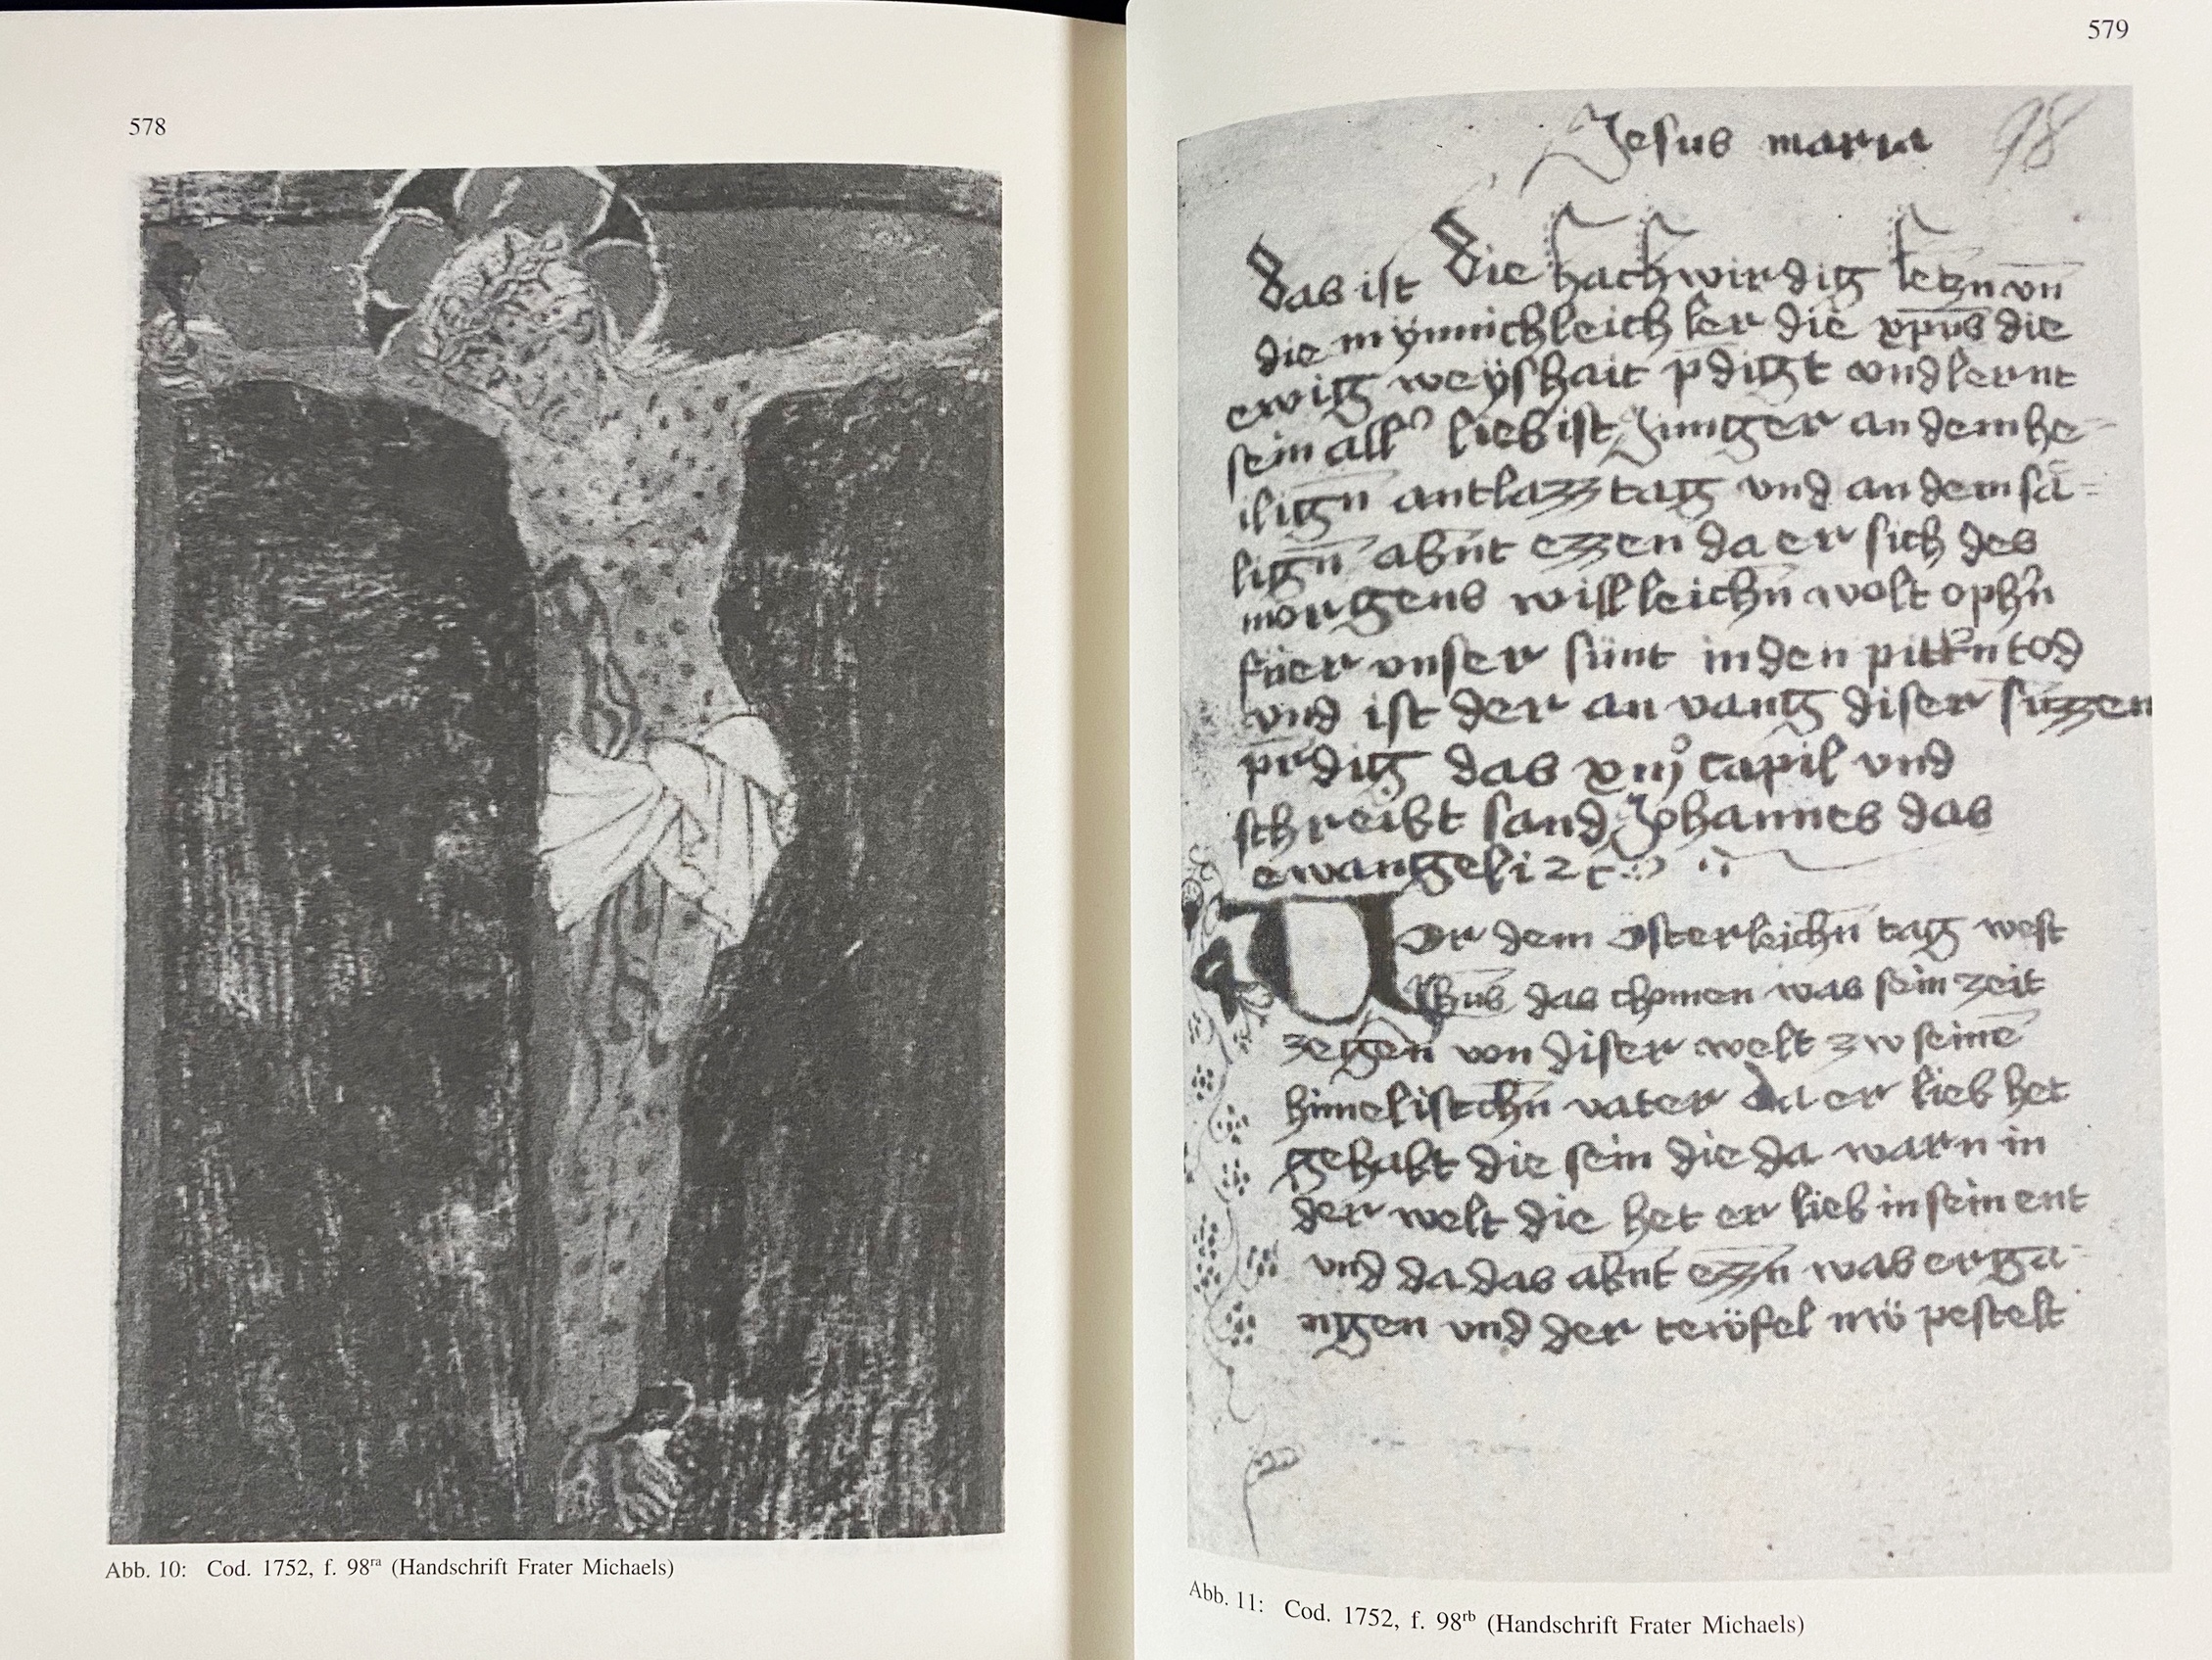 578
Abb. 10: Cod. 1752, f. 98ra (Handschrift Frater Michaels)
579
Jesus maria 98
das ist die hachwirdig letzn vn̄
die mynnichleich ler die xpūs die
ewig weÿshait p̄digt vnd lernt
sein all liebist Junger an dem he-
ilign̄ antlazz tag vnd an dem sä-
lign̄ abnt ezzen da er sich des
morgens willleichn̄ wolt ophn̄
füer vnser sünt in den pittn̄ tod
vnd ist der an vang diser süzzen
prdig das xiijº capil vnd
schreibt sand Johannes das
ewangeli zc
Vor dem österleichn̄ tag west
Ihūs das chomen was sein zeit
ze gen von diser welt zw seinē
himelistchn̄ vater da er lieb het
gehabt die sein die da warn in
der welt die het er lieb in sein ent
vnd da das abnt ezzn̄ was erga-
ngen vnd der tewfel nw pestelt
Abb. 11: Cod. 1752, f. 98rb (Handschrift Frater Michaels)